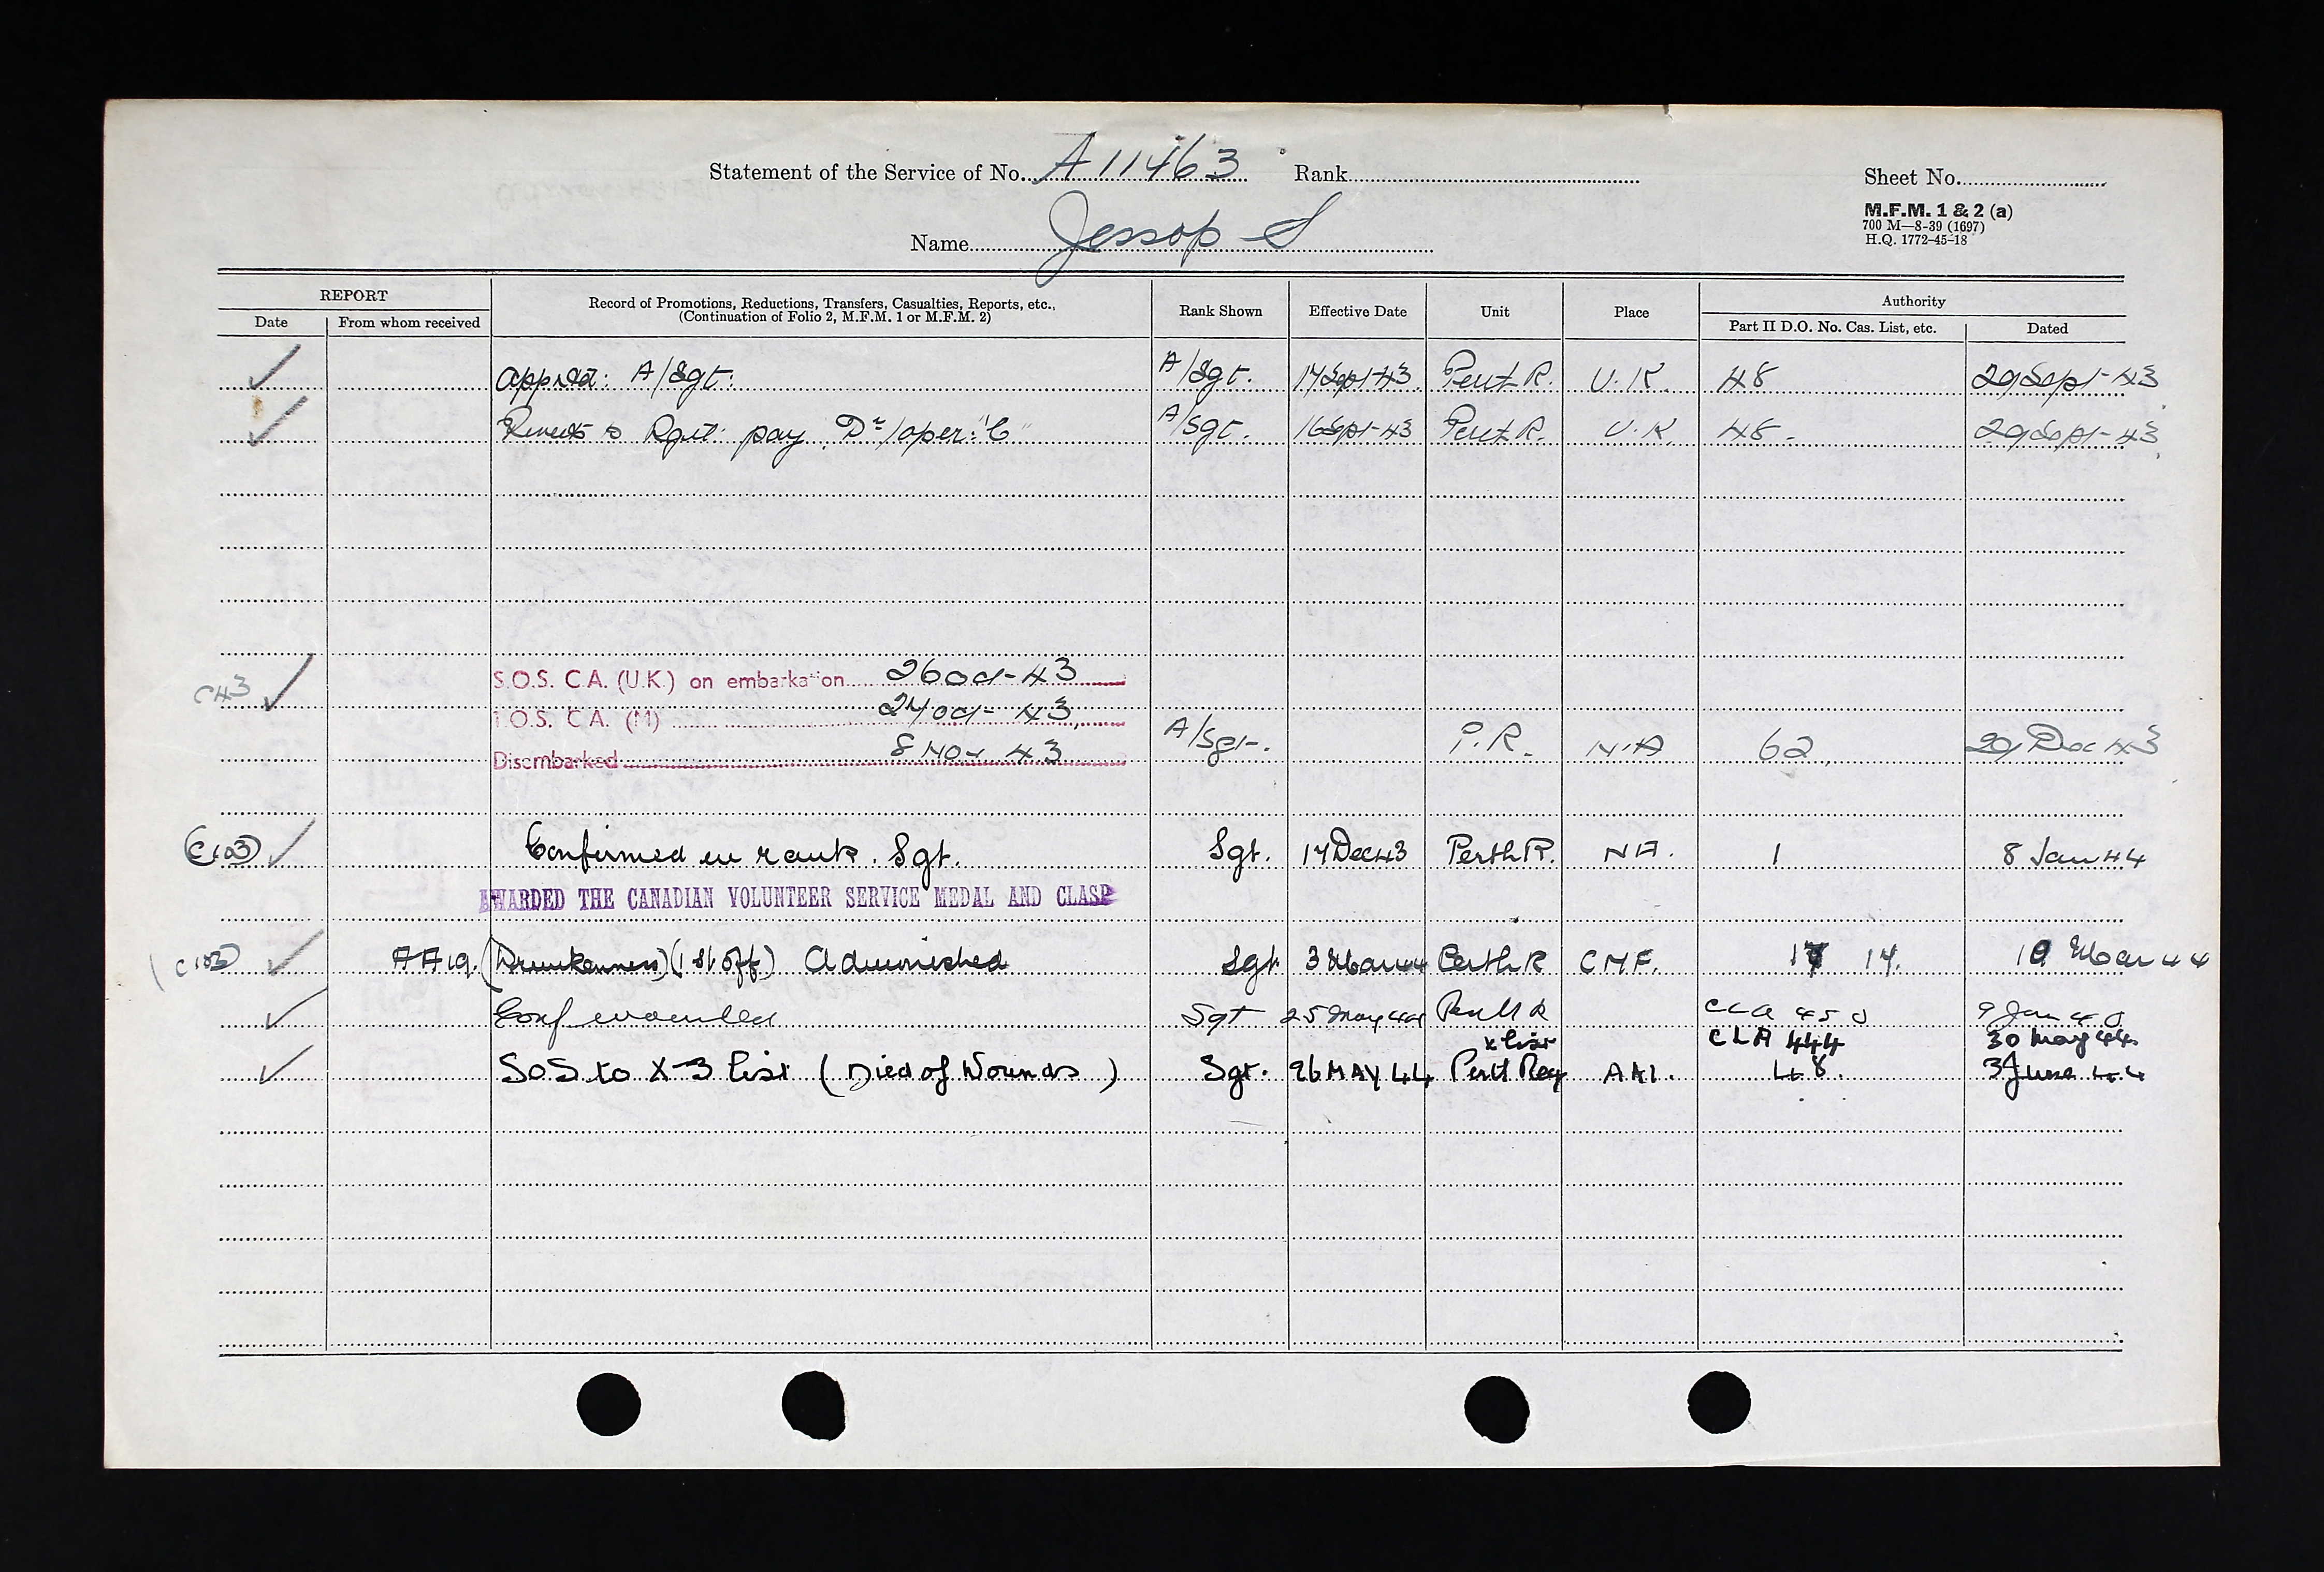 Statement of the Service of No. A 11463 Rank
Sheet No.
M.F.M. 1 & 2 (a)
700 M—8-39 (1697)
H.Q. 1772-45-18
Name Jessop S
REPORT
Date From whom received
Record of Promotions, Reductions, Transfers, Casualties, Reports, etc.,
(Continuation of Folio 2, M.F.M. 1 or M.F.M. 2)
Rank Shown Effective Date Unit Place
Authority
Part II D.O. No. Cas. List, etc. Dated
A/Sgt. A/Sgt. 17 Sept-43 Perth R. U.K. 48 29 Sept-43
to Rgtl pay "C" A/Sgt. 16 Sept-43 Perth R. U.K. 48. 29 Sept-43
C43 S.O.S. C.A. (U.K.) on embarkation 26 Oct-43
T.O.S. C.A. (M) 27 Oct-43
Disembarked 8 Nov 43 A/Sgt. P.R. N.A 62 29 Dec 43
C103 Confirmed in rank. Sgt. Sgt. 17 Dec 43 Perth R. N A. 1 8 Jan 44
AWARDED THE CANADIAN VOLUNTEER SERVICE MEDAL AND CLASP
C103 AA19. (Drunkenness) (1st Off) Admonished Sgt. 3 Mar 44 Perth R CMF. 14. 10 Mar 44
Conf wounded Sgt 25 May 44 Perth R CLA 450 9
x list CLA 444 30 May 44
SOS to X-3 list (Died of Wounds) Sgt. 26 MAY 44 Perth Reg AAI. 48. 3 June 44